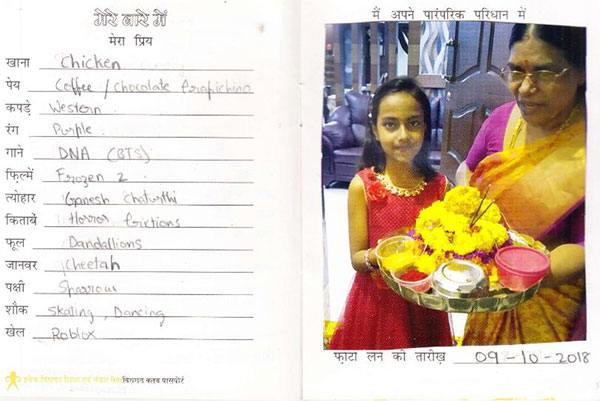 मेरे बारे में
मेरा प्रिय
खाना Chicken
पेय Coffee / Chocolate frapichino
कपड़े Western
रंग Purple
गाने DNA (BTS)
फ़िल्में Frozen 2
त्योहार Ganesh chaturthi
किताबें Horror frictions
फूल Dandallions
जानवर Cheetah
पक्षी Sparrow
शौक skating, Dancing
खेल Roblox
क्लब पासपोर्ट
मैं अपने पारंपरिक परिधान में
फ़ोटो लेने की तारीख़ 09-10-2018